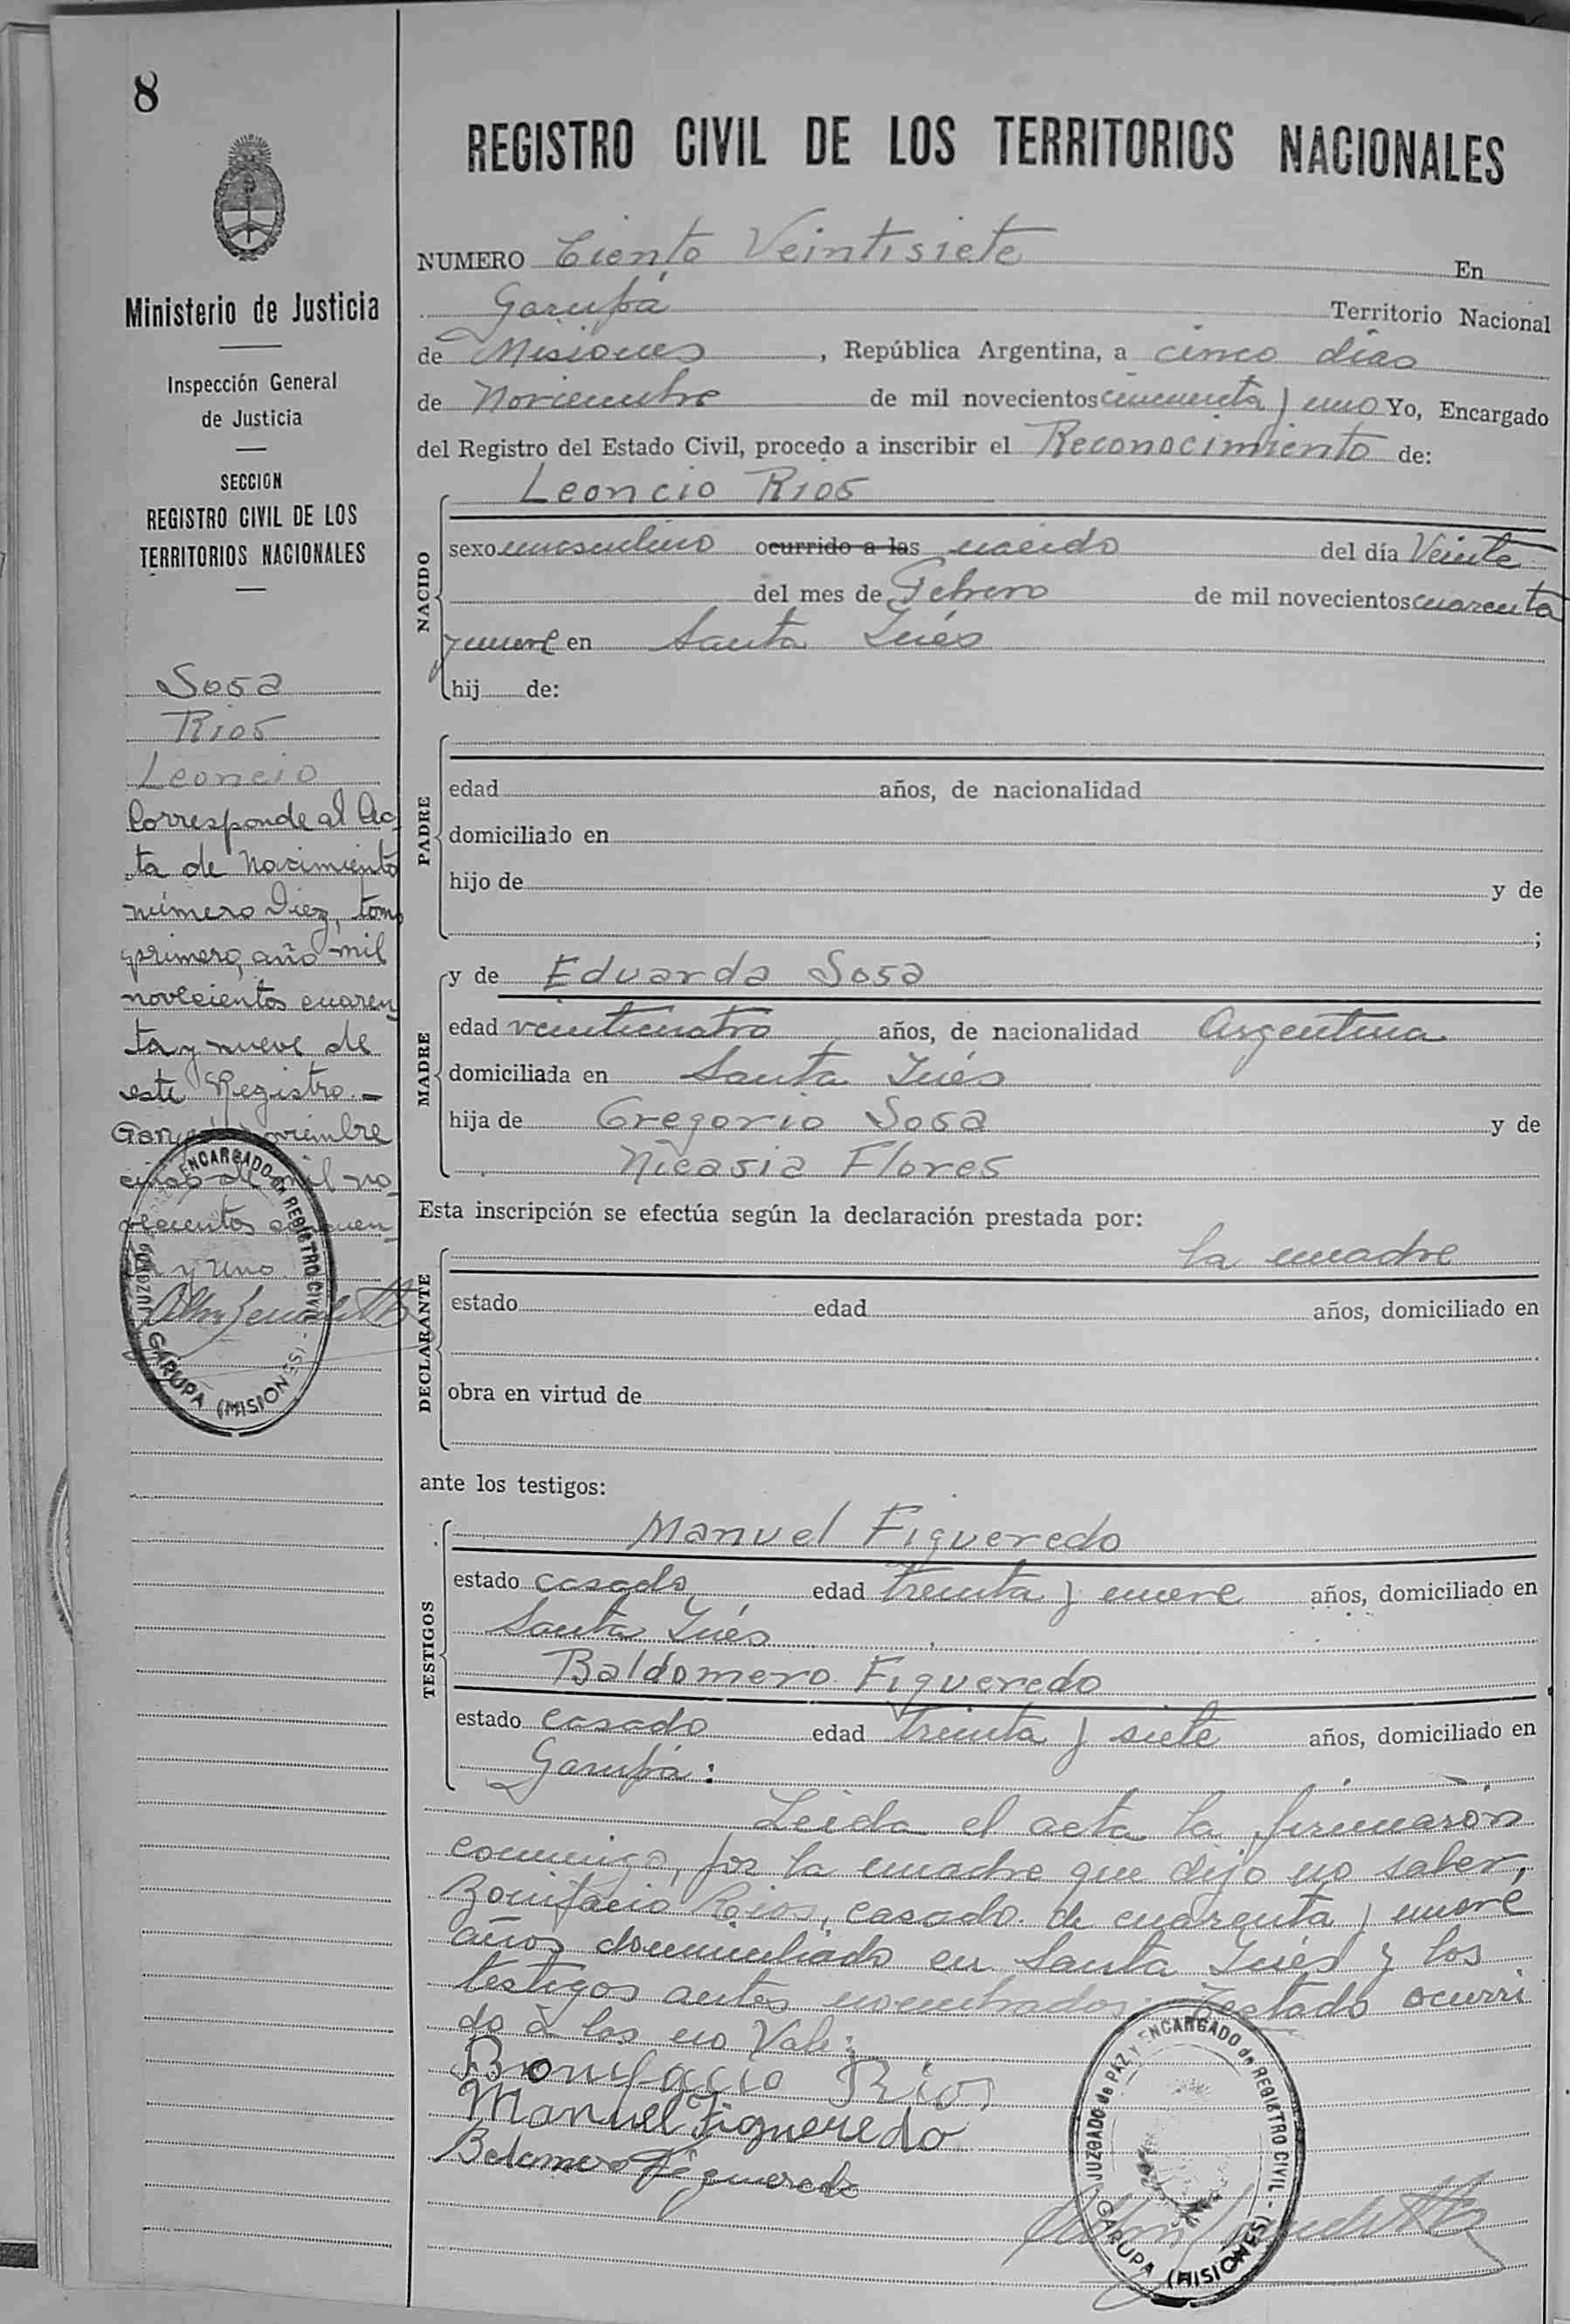 8
Ministerio de Justicia
Inspección General
de Justicia
SECCION
REGISTRO CIVIL DE LOS
TERRITORIOS NACIONALES
Sosa
Rios
Leoncio
Corresponde al Ac-
ta de Nacimiento
número Diez, tomo
primero, año mil
novecientos cuaren
ta y nueve de
este Registro.-
Garupá noviembre
cinco de mil no-
vecientos cincuen-
ta y uno
JUZGADO de PAZ Y ENCARGADO de REGISTRO CIVIL - GARUPA (MISIONES)
REGISTRO CIVIL DE LOS TERRITORIOS NACIONALES
NUMERO Ciento Veintisiete En
Garupá Territorio Nacional
de Misiones, República Argentina, a cinco dias
de Noviembre de mil novecientos cincuenta y uno Yo, Encargado
del Registro del Estado Civil, procedo a inscribir el Reconocimiento de:
Leoncio Rios
NACIDO
sexo masculino ocurrido a las nacido del día Veinte
del mes de Febrero de mil novecientos cuarenta
y nueve en Santa Inés
hij de:
PADRE
edad años, de nacionalidad
domiciliado en
hijo de y de
;
MADRE
y de Eduarda Sosa
edad veinticuatro años, de nacionalidad Argentina
domiciliada en Santa Inés
hija de Gregorio Sosa y de
Nicasia Flores
Esta inscripción se efectúa según la declaración prestada por:
DECLARANTE
la madre
estado edad años, domiciliado en
obra en virtud de
ante los testigos:
TESTIGOS
Manuel Figueredo
estado casado edad treinta y nueve años, domiciliado en
Santa Inés
Baldomero Figueredo
estado casado edad treinta y siete años, domiciliado en
Garupá:
Leida el acta la firmaron
conmigo, por la madre que dijo no saber,
Bonifacio Rios, casado de cuarenta y nueve
años domiciliado en Santa Inés y los
testigos antes nombrados: Testado ocurri
do a las no Vale:
Bonifacio Rios
Manuel Figueredo
Baldomero Figueredo
JUZGADO de PAZ Y ENCARGADO de REGISTRO CIVIL - GARUPA (MISIONES)